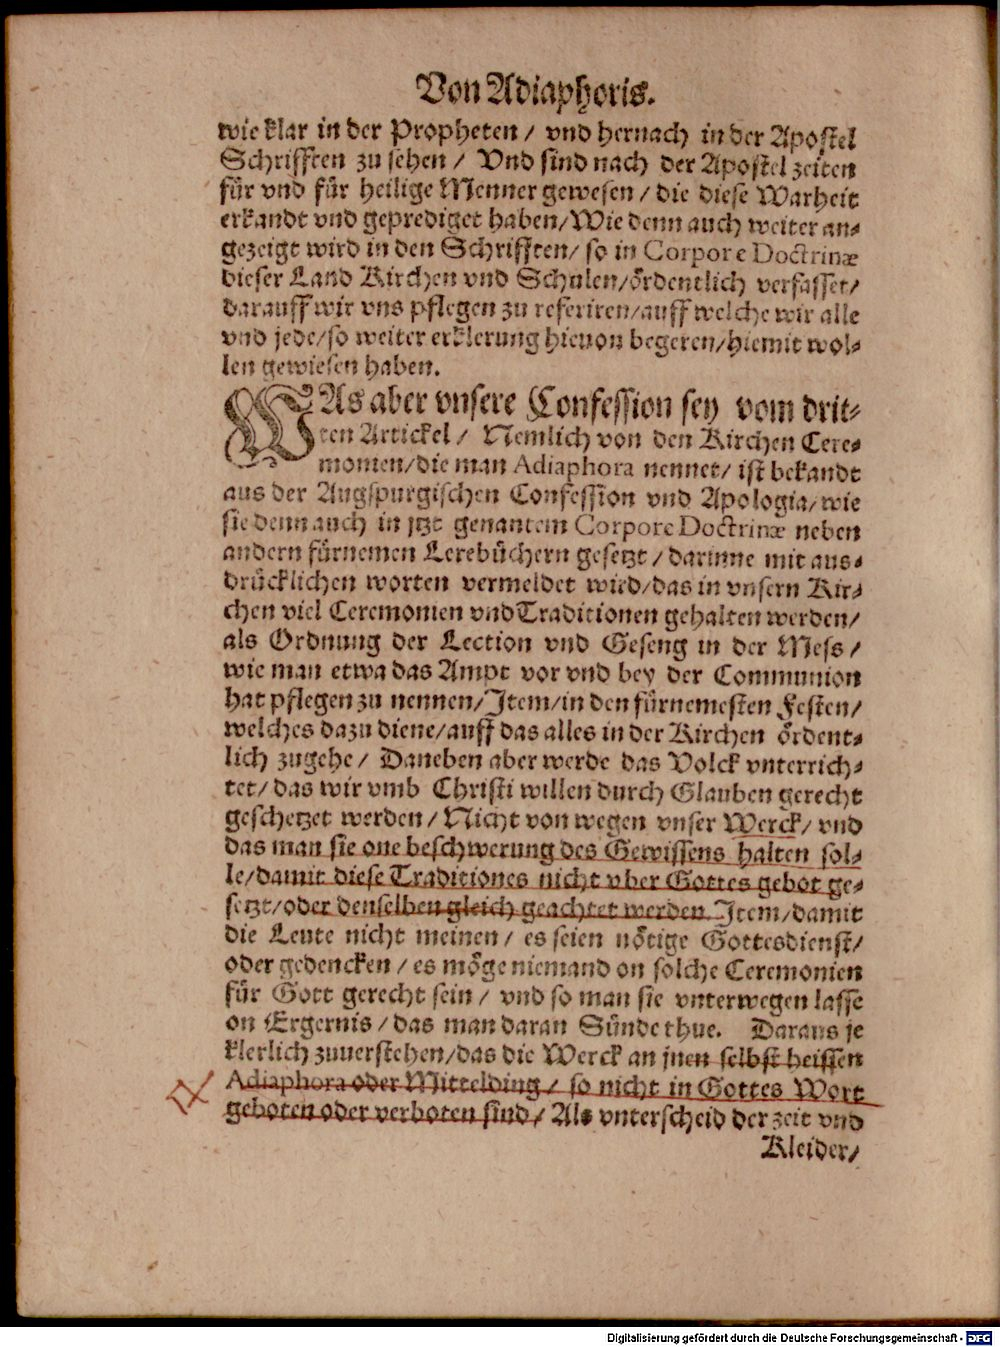 Von Adiaphoris.
wie klar in der Propheten / vnd hernach in der Apostel
Schrifften zu sehen / Vnd sind nach der Apostel zeiten
für vnd für heilige Menner gewesen / die diese Warheit
erkandt vnd geprediget haben / Wie denn auch weiter an-
gezeigt wird in den Schrifften / so in Corpore Doctrinæ
dieser Land Kirchen vnd Schulen / ördentlich verfasset /
darauff wir vns pflegen zu referiren / auff welche wir alle
vnd jede / so weiter erklerung hieuon begeren / hiemit wol-
len gewiesen haben.
WAs aber vnsere Confession sey vom drit-
ten Artickel / Nemlich von den Kirchen Cere-
monien / die man Adiaphora nennet / ist bekandt
aus der Augspurgischen Confession vnd Apologia / wie
sie denn auch in jtzt genantem Corpore Doctrinæ neben
andern fürnemen Lerebüchern gesetzt / darinne mit aus-
drücklichen worten vermeldet wird / das in vnsern Kir-
chen viel Ceremonien vnd Traditionen gehalten werden /
als Ordnung der Lection vnd Geseng in der Mess /
wie man etwa das Ampt vor vnd bey der Communion
hat pflegen zu nennen / Item / in den fürnemesten Festen /
welches dazu diene / auff das alles in der Kirchen ördent-
lich zugehe / Daneben aber werde das Volck vnterrich-
tet / das wir vmb Christi willen durch Glauben gerecht
geschetzet werden / Nicht von wegen vnser Werck / vnd
das man sie one beschwerung des Gewissens halten sol-
le / damit diese Traditiones nicht vber Gottes gebot ge-
setzt / oder denselben gleich geachtet werden. Item / damit
die Leute nicht meinen / es seien nötige Gottesdienst /
oder gedencken / es möge niemand on solche Ceremonien
für Gott gerecht sein / vnd so man sie vnterwegen lasse
on Ergernis / das man daran Sünde thue. Daraus je
klerlich zuuerstehen / das die Werck an jnen selbst heissen
Adiaphora oder Mittelding / so nicht in Gottes Wort
geboten oder verboten sind / Als vnterscheid der zeit vnd
Kleider /
Digitalisierung gefördert durch die Deutsche Forschungsgemeinschaft - DFG